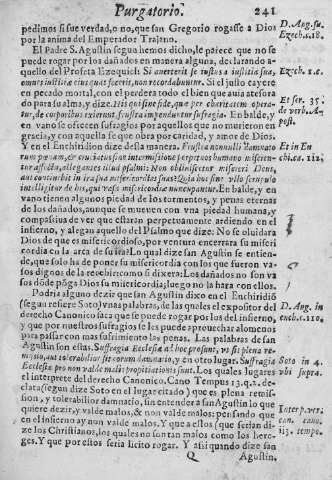 Purgatorio. 241
pedimos si fue verdad, o no, que san Gregorio rogasse a Dios
por la anima del Emperador Trajano.
El Padre S. Agustin segun hemos dicho, le parece que no se
puede rogar por los dañados en manera alguna, declarando a-
quello del Profeta Ezequiel: Si auerterit se iustus a iustitia sua,
omnes iustitiæ eius quas fecerit, non recordabuntur. Si el justo cayere
en pecado mortal, con el perdera todo el bien que auia atesora
do para su alma, y dize. His qui sine fide, que per charitatem opera-
tur, de corporibus exierunt, frustra impendutur sufragia. En balde, y
en vano se ofrecen sufragios por aquellos que no murieron en
gracia, y con aquella fe que obra por caridad, y amor de Dios.
Y en el Enchiridion dize desta manera. Frustra nonnulli damnato
rum pœnam, & cruciatus sine intermissione perpetuos humano miserien-
tur affectu, allegantes illud psalmi: Non obliuiscetur misereri Deus,
aut continebit in ira sua misericordias suas? Quia hoc sine vllo scrupulo
intelligitur de his, qui vasa misericordiæ nuncupantur. En balde, y en
vano tienen algunos piedad de los tormentos, y penas eternas
de los dañados, aunque se mueuen con vna piedad humana, y
compassiua de ver que estaran perpetuamente ardiendo en el
infierno, y alegan aquello del Psalmo que dize: No se oluidara
Dios de que es misericordioso, por ventura encerrara su miseri
cordia en la arca de su ira? Lo qual dize san Agustin se entien-
de, que solo ha de poner su misericordia con los que fueron va-
sos dignos de la recebir como si dixera: Los dañados no son va
sos dõde põga Dios su misericordia; luego no la hara con ellos.
Podria alguno dezir que san Agustin dixo en el Enchiridiõ
(segun refiere Soto) vnas palabras, de las quales el expositor del
derecho Canonico saca que se puede rogar por los del infierno,
y que por nuestros sufragios se les puede aprouechar alomenos
para passar con mas sufrimiento las penas. Las palabras de san
Agustin son estas. Suffragia Ecclesiæ ad hoc prosunt, vt sit plena re-
missio, aut tolerabilior fit eorum damnatio, y en otro lugar. Suffragia
Ecclesiæ pro non valde malis propitiationis sunt. Los quales lugares
el interprete del derecho Canonico. Cano Tempus 13. q. 2. de-
clara (segun dize Soto en el lugar citado) que es plena remis-
sion, y tolerabilior damnatio, sin entender a san Agustin lo que
quiere dezir, y valde malos, & non valde malos; pensando que
en el infierno ay non valde malos. Y que a estos (que serian di-
ze los Christianos, los quales no son tan malos como los here-
ges. Y que por estos seria licito rogar. Y assi quando dize san
Q Agustin,
D. Aug. su.
Ezech. c. 18.
Ezech. 1. c.
Et ser. 35.
de verb. A-
post.
Et in En
chi. ca. 112.
D. Aug. in
ench. c. 110.
Soto in 4.
vbi supra.
Interp. ver.
can. cano.
113. tempo.